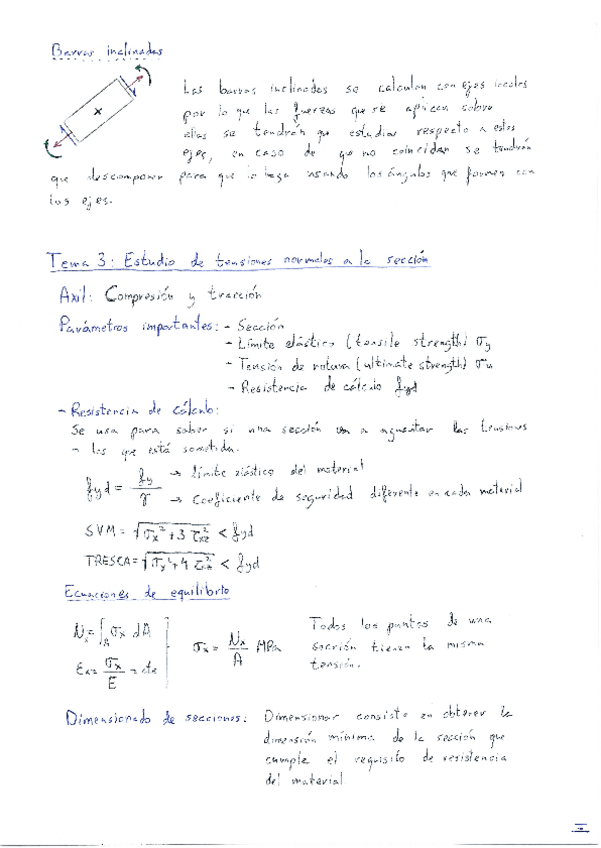 Barras inclinadas
Las barras inclinadas se calculan con ejes locales
por lo que las fuerzas que se aplican sobre
ellas se tendrán que estudiar respecto a estos
ejes, en caso de que no coincidan se tendrán
que descomponer para que lo haga usando los ángulos que formen con
los ejes.
Tema 3: Estudio de tensiones normales a la sección
Axil: Compresión y tracción
Parámetros importantes: - Sección
- Límite elástico (tensile strength) σy
- Tensión de rotura (ultimate strength) σu
- Resistencia de cálculo fyd
- Resistencia de cálculo:
Se usa para saber si una sección va a aguantar las tensiones
a las que está sometida.
fyd = fy / γ → límite elástico del material
→ Coeficiente de seguridad diferente en cada material
SVM = √(σx² + 3 τxz²) < fyd
TRESCA = √(σx² + 4 τxz²) < fyd
Ecuaciones de equilibrio
Nx = ∫A σx dA
εx = σx / E = cte
σx = Nx / A MPa
Todos los puntos de una
sección tienen la misma
tensión.
Dimensionado de secciones: Dimensionar consiste en obtener la
dimensión mínima de la sección que
cumple el requisito de resistencia
del material